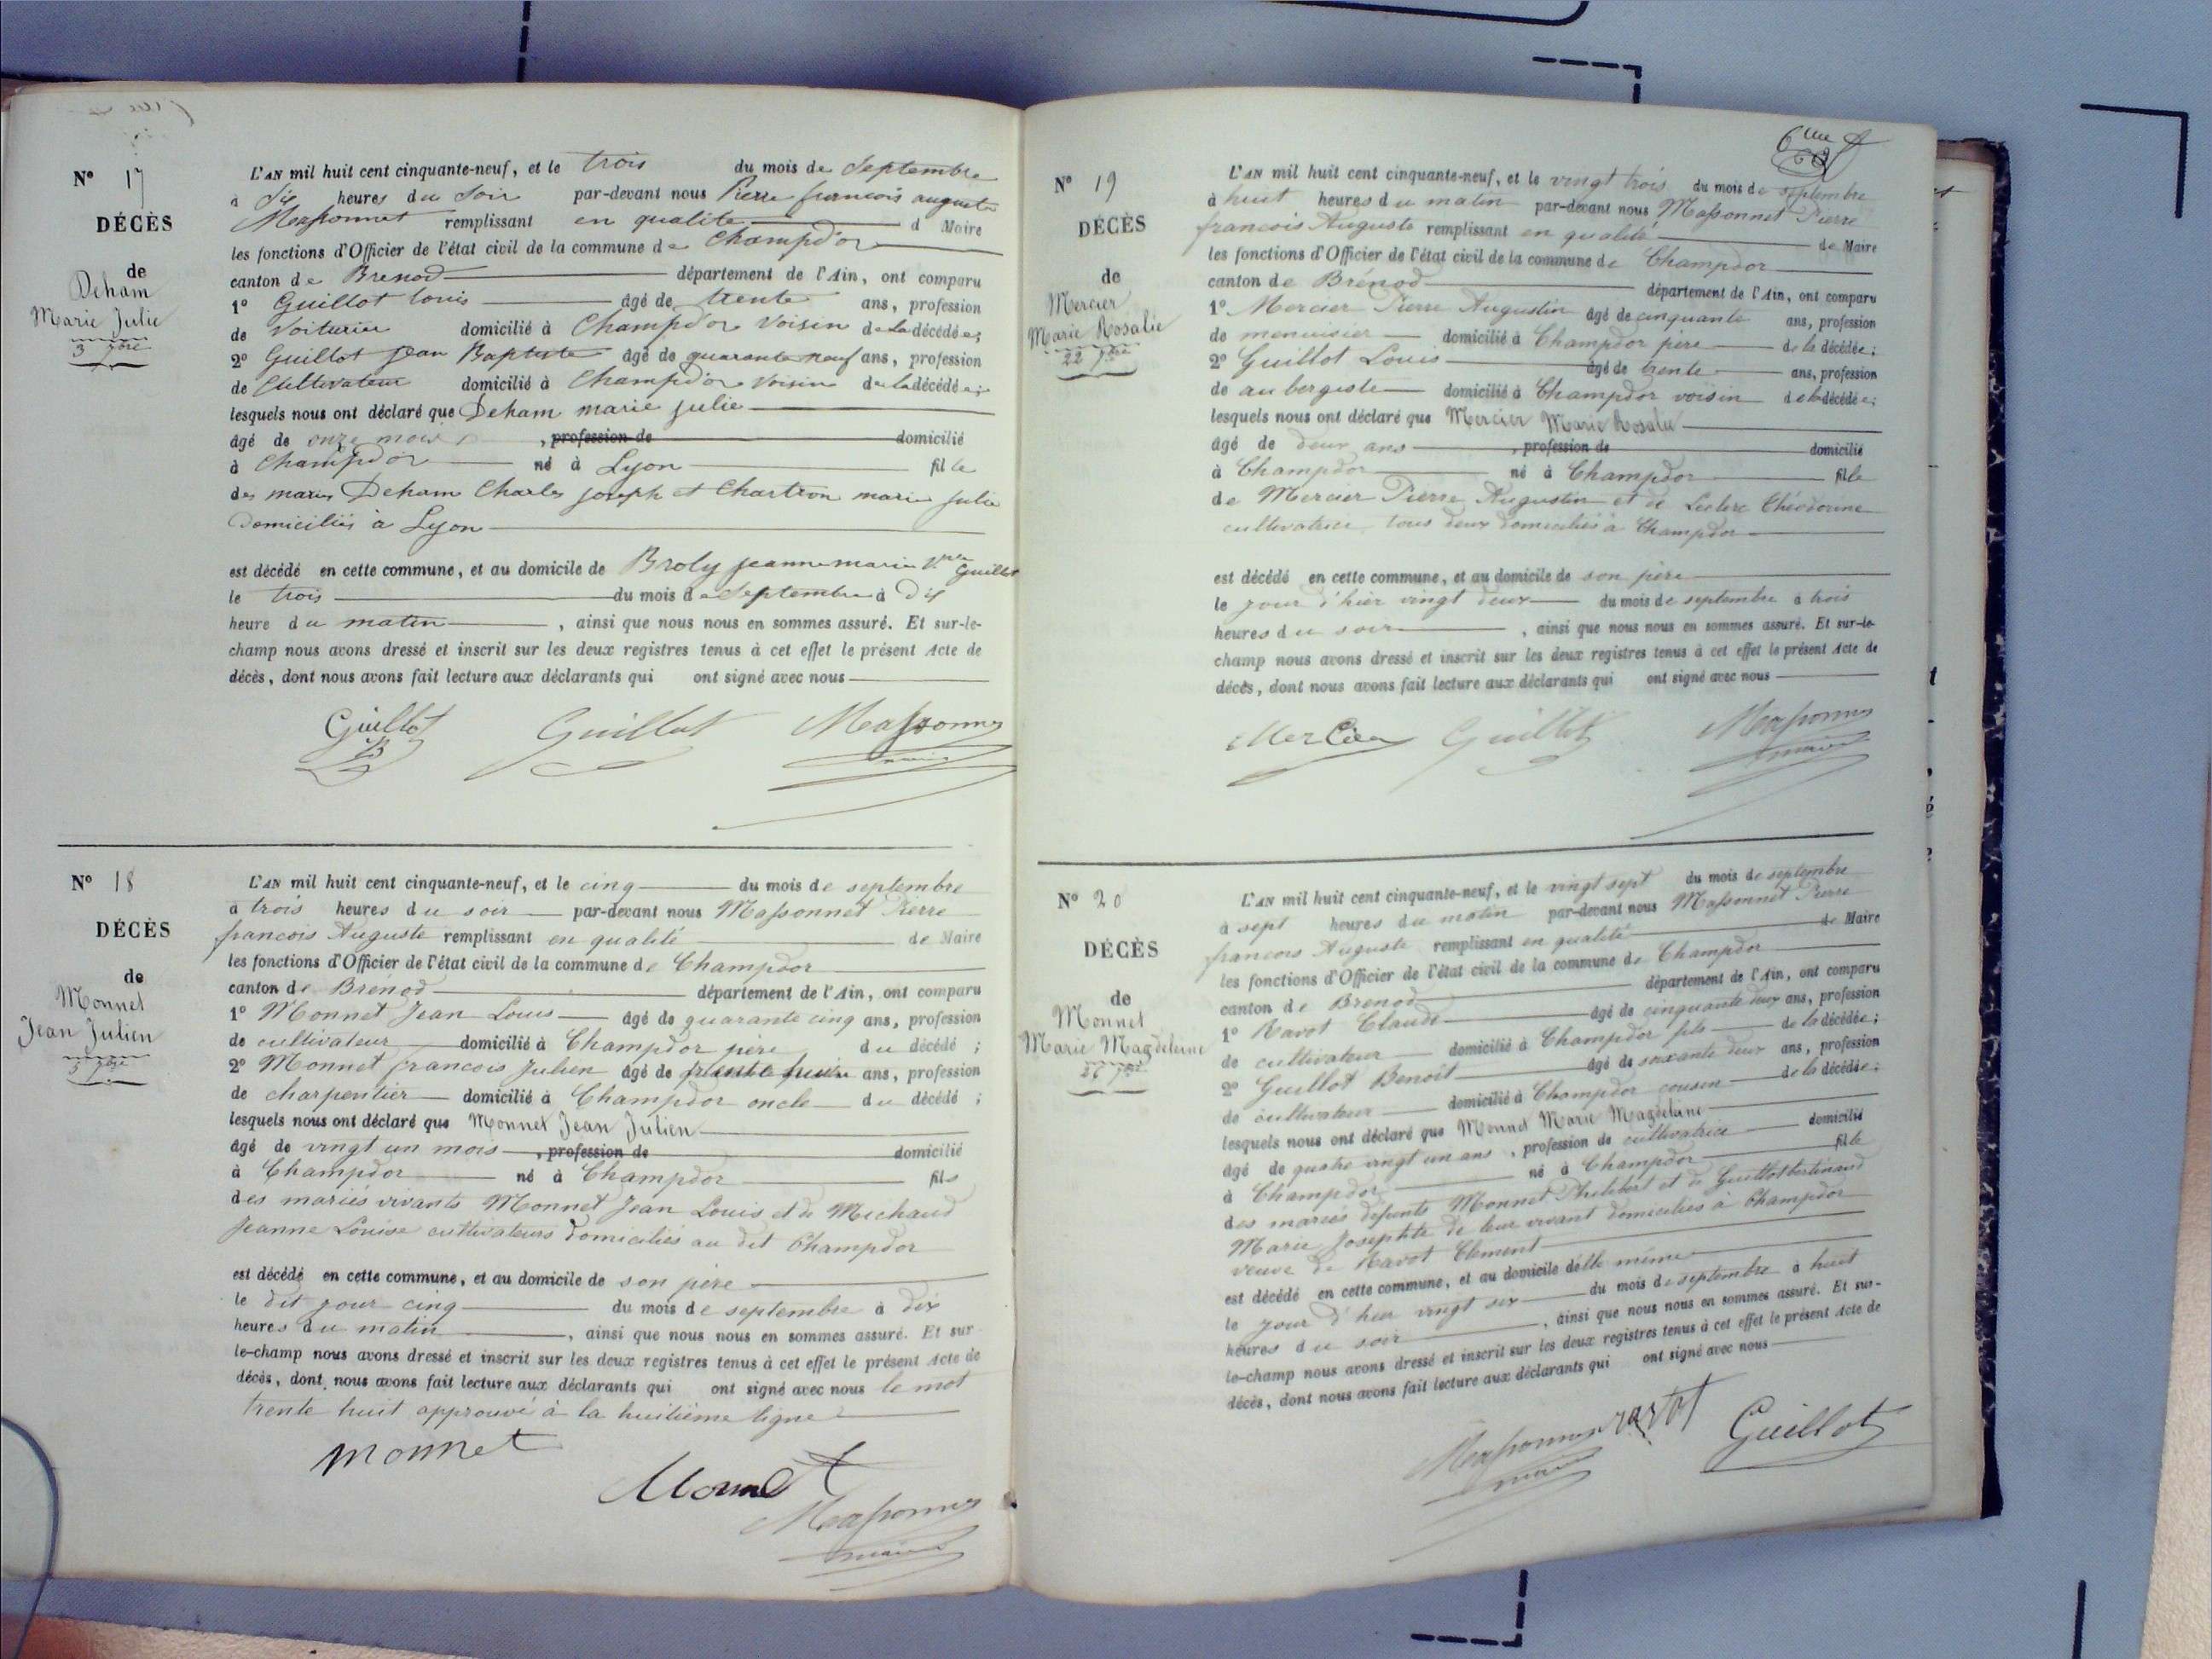 N° 17
DÉCÈS
de
Deham
Marie Julie
3 7bre
L'AN mil huit cent cinquante-neuf, et le trois du mois de Septembre
à Six heures du Soir par-devant nous Pierre francois auguste
Massonnet remplissant en qualite d Maire
les fonctions d'Officier de l'état civil de la commune de Champd'or
canton de Brenod département de l'Ain, ont comparu
1° Guillot Louis âgé de trente ans, profession
de Voiturier domicilié à Champd'or Voisin de la décédée;
2° Guillot Jean Baptiste âgé de quarante neuf ans, profession
de Cultivateur domicilié à Champd'or Voisin de la décédée;
lesquels nous ont déclaré que Deham marie julie
âgé de onze mois, profession de domicilié
à Champd'or né à Lyon fille
des mariés Deham Charles joseph et Chartron marie julie
Domiciliés à Lyon
est décédé en cette commune, et au domicile de Broly jeanne marie Vve Guillot
le trois du mois de Septembre à Dix
heure du matin, ainsi que nous nous en sommes assuré. Et sur-le-
champ nous avons dressé et inscrit sur les deux registres tenus à cet effet le présent Acte de
décès, dont nous avons fait lecture aux déclarants qui ont signé avec nous
Guillot Guillot Massonnet
JB maire
N° 18
DÉCÈS
de
Monnet
Jean Julien
5 7bre
L'AN mil huit cent cinquante-neuf, et le cinq du mois de septembre
à trois heures du soir par-devant nous Massonnet Pierre
francois Auguste remplissant en qualité de Maire
les fonctions d'Officier de l'état civil de la commune de Champdor
canton de Brénod département de l'Ain, ont comparu
1° Monnet Jean Louis âgé de quarante cinq ans, profession
de cultivateur domicilié à Champdor père du décédé ;
2° Monnet francois Julien âgé de trente huit ans, profession
de charpentier domicilié à Champdor oncle du décédé ;
lesquels nous ont déclaré que Monnet Jean Julien
âgé de vingt un mois, profession de domicilié
à Champdor né à Champdor fils
des mariés vivants Monnet Jean Louis et de Michaud
Jeanne Louise cultivateurs domiciliés au dit Champdor
est décédé en cette commune, et au domicile de son père
le dit jour cinq du mois de septembre à dix
heures du matin, ainsi que nous nous en sommes assuré. Et sur
le-champ nous avons dressé et inscrit sur les deux registres tenus à cet effet le présent Acte de
décès, dont nous avons fait lecture aux déclarants qui ont signé avec nous le mot
trente huit approuvé à la huitième ligne
monnet
Monnet
Massonnet
maire
6me
N° 19
DÉCÈS
de
Mercier
Marie Rosalie
22 7bre
L'AN mil huit cent cinquante-neuf, et le vingt trois du mois de septembre
à huit heures du matin par-devant nous Massonnet Pierre
francois Auguste remplissant en qualité de Maire
les fonctions d'Officier de l'état civil de la commune de Champdor
canton de Brénod département de l'Ain, ont comparu
1° Mercier Pierre Augustin âgé de cinquante ans, profession
de menuisier domicilié à Champdor père de la décédée ;
2° Guillot Louis âgé de trente ans, profession
de aubergiste domicilié à Champdor voisin de la décédée ;
lesquels nous ont déclaré que Mercier Marie Rosalie
âgé de deux ans, profession de domicilié
à Champdor né à Champdor fille
de Mercier Pierre Augustin et de Leclerc Théodorine
cultivatrice tous deux domiciliés à Champdor
est décédé en cette commune, et au domicile de son père
le jour d'hier vingt deux du mois de septembre à trois
heures du soir, ainsi que nous nous en sommes assuré. Et sur-le-
champ nous avons dressé et inscrit sur les deux registres tenus à cet effet le présent Acte de
décès, dont nous avons fait lecture aux déclarants qui ont signé avec nous
Mercier Guillot Massonnet
maire
N° 20
DÉCÈS
de
Monnet
Marie Magdeleine
26 7bre
L'AN mil huit cent cinquante-neuf, et le vingt sept du mois de septembre
à sept heures du matin par-devant nous Massonnet Pierre
francois Auguste remplissant en qualité de Maire
les fonctions d'Officier de l'état civil de la commune de Champdor
canton de Brénod département de l'Ain, ont comparu
1° Ravot Claude âgé de cinquante deux ans, profession
de cultivateur domicilié à Champdor fils de la décédée ;
2° Guillot Benoit âgé de soixante deux ans, profession
de cultivateur domicilié à Champdor cousin de la décédée ;
lesquels nous ont déclaré que Monnet Marie Magdelaine
âgé de quatre vingt un ans, profession de cultivatrice domicilié
à Champdor né à Champdor fille
des mariés défunts Monnet Philibert et de Guillot
Marie Josephte de leur vivant domiciliés à Champdor
veuve de Ravot Clement
est décédé en cette commune, et au domicile d'elle même
le jour d'hier vingt six du mois de septembre à huit
heures du soir, ainsi que nous nous en sommes assuré. Et sur-
le-champ nous avons dressé et inscrit sur les deux registres tenus à cet effet le présent Acte de
décès, dont nous avons fait lecture aux déclarants qui ont signé avec nous
Massonnet ravot Guillot
maire